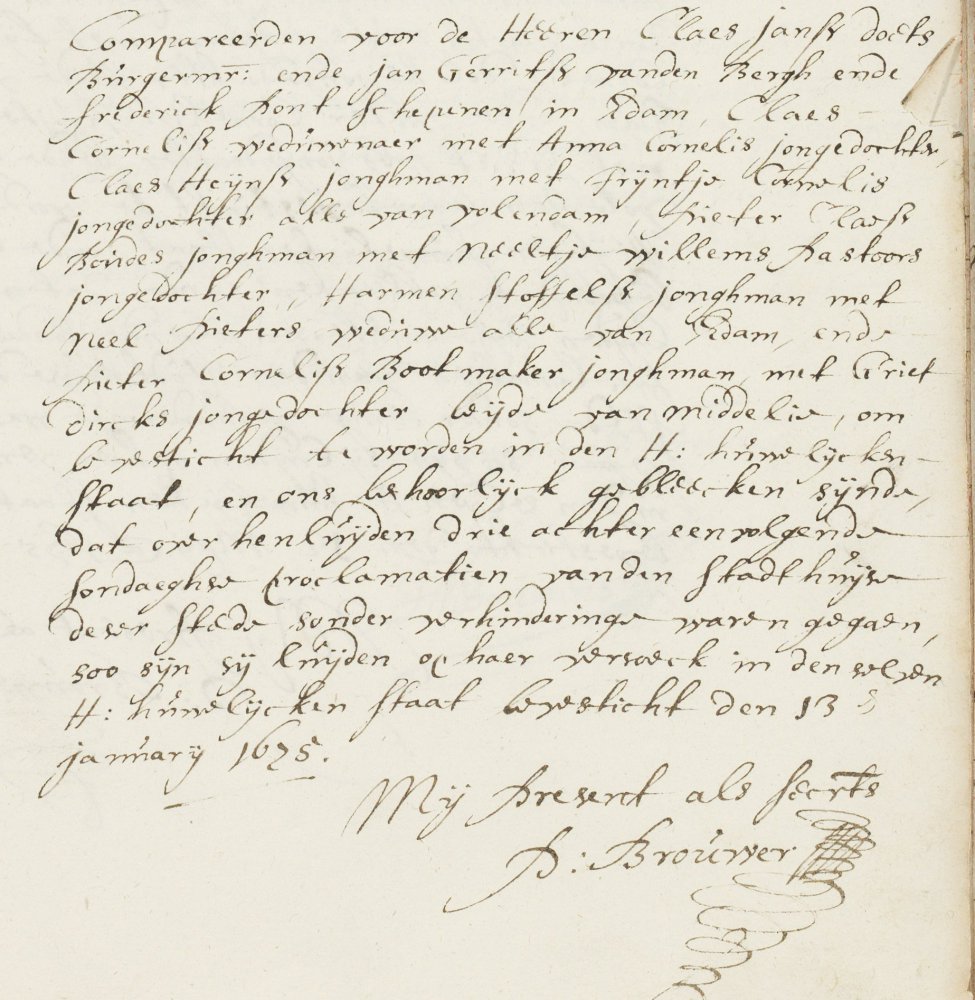 Compareerden voor de Heeren Claes Jansz doets
Bürgermr: ende Jan Gerritsz vanden Bergh ende
frederick Pont schepenen in Edam, Claes
Cornelisz wedüwenaer met Anna Cornelis jongedochter,
Claes Heÿnsz jonghman met Trÿntje Cornelis
jongedochter alle van volendam, Pieter Claesz
Bondes jonghman met Neeltje willems Pastoors
jongedochter, Harmen stoffelsz jonghman met
Neel Pieters wedüwe alle van Edam, ende
Pieter Cornelisz Bootmaker, jonghman, met Griet
dircks jongedochter beÿde van middelie, om
bevesticht te worden in den H: hüwelÿcken
staat, en ons behoorlÿck gebleecken sÿnde,
dat over henlüÿden drie achter een volgende
sondaeghse proclamatien van den stadthüÿse
deser stede sonder verhinderinge waren gegaen,
soo sÿn sÿ lüÿden op haer versoeck in den selven
H: hüwelÿcken staat bevesticht den 13
janüarÿ 1675.
Mÿ Present als secrts
P: Broüwer